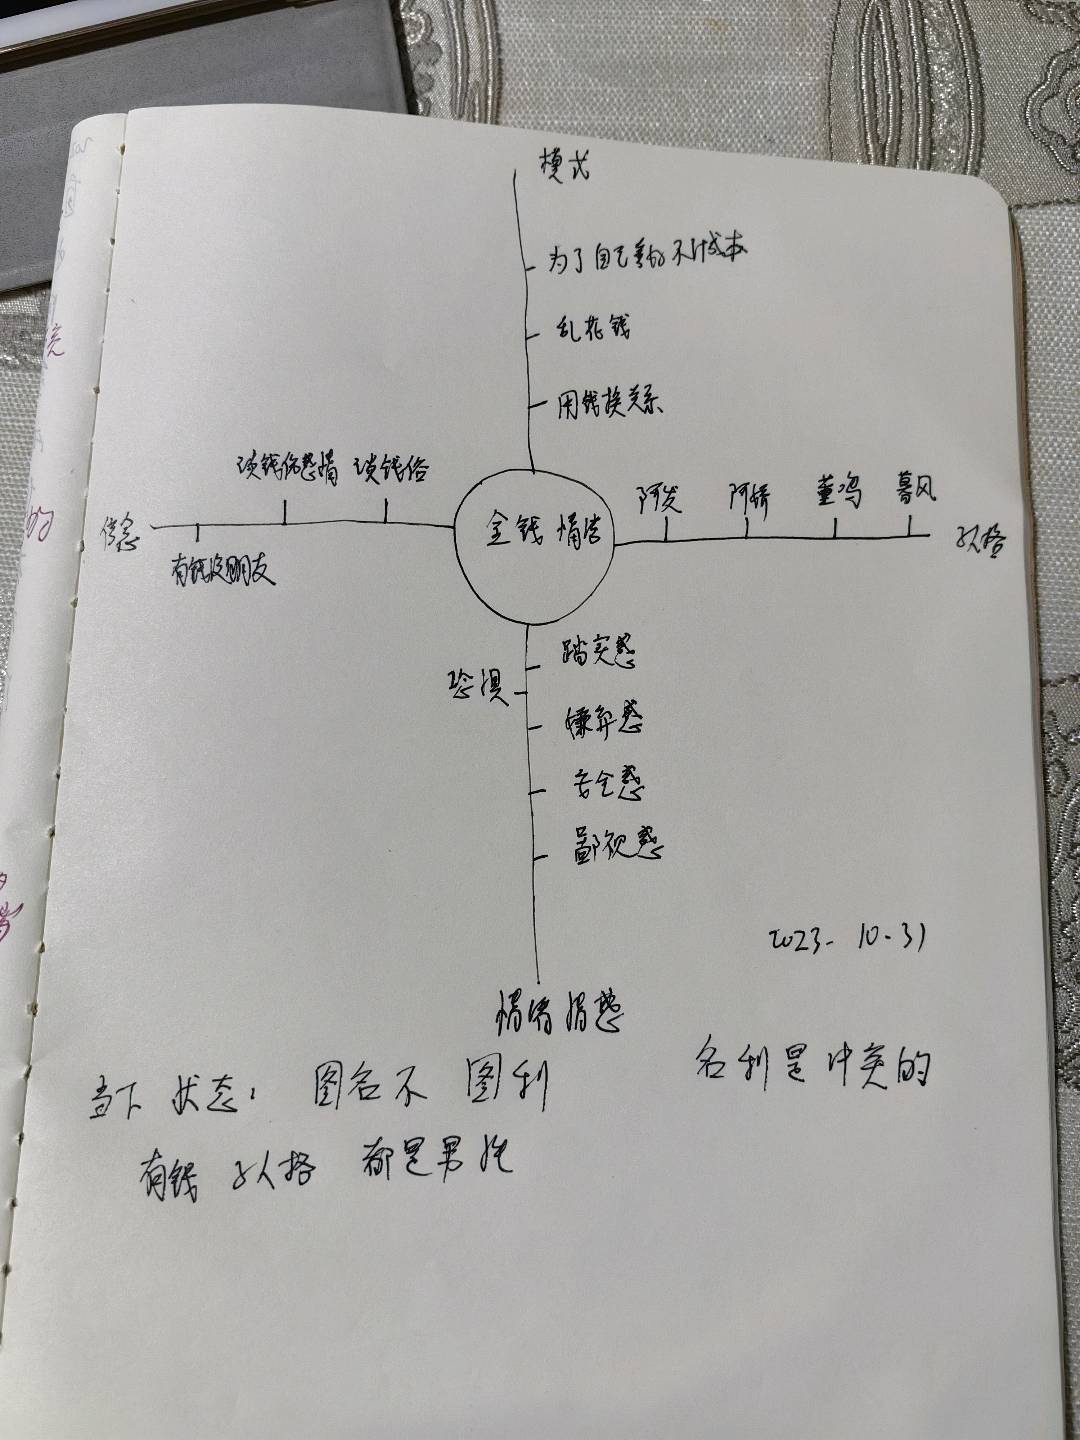 模式
为了自己爽的不计成本
乱花钱
用钱换关系
谈钱伤感情 谈钱俗
信念
有钱没朋友
金钱 情结
阿发 阿娇 董鸿 暮风
子人格
踏实感
恐惧
嫌弃感
安全感
鄙视感
2023-10-31
情绪情感
当下 状态: 图名不 图利
名利是冲突的
有钱 子人格 都是男性